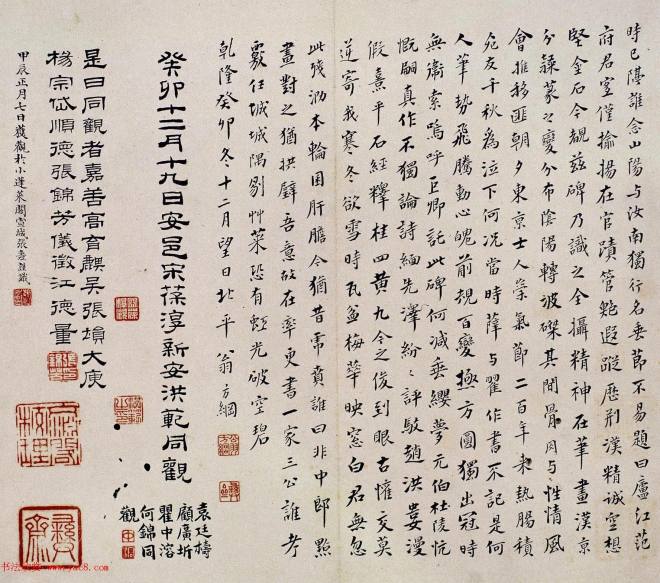 時已隆誰念山陽与汝南獨行名垂節不易題曰廬江范
府君室僅揄揚在官蹟管鮑遐蹤歷荆漢精誠空想
堅金石今覩茲碑乃識之全攝精神在筆畫漢京
分隸篆之變分布陰陽轉波磔其閒骨肉与性情風
會推移匪朝夕東京士人崇氣節二百年來熱腸積
死友千秋為泣下何況當時薛与翟作書不記是何
人筆勢飛騰動心魄前規百變極方圓獨出冠時
無衛索嗚呼巨卿託此碑何減垂纓夢元伯杜陵忼
慨嗣真作不獨論詩緬先澤紛紛評駮趙洪婁漫
假熹平石經釋桂四黄九今之俊到眼古懽交莫
逆寄我寒冬欲雪時瓦盆梅華映窓白君無忽
此殘泐本輪囷肝膽今猶昔帚賁誰曰非中郎點
畫對之猶拱璧吾意故在率更書一家三公誰考
覈任城城隅剔艸萊恐有虹光破空碧
乾隆癸卯冬十二月望日北平翁方綱
癸卯十二月十九日安邑宋葆淳新安洪範同觀
袁廷檮
顧廣圻
瞿中溶
何錦同
觀
是日同觀者嘉善高育麒吳張塤大庚
楊宗岱順德張錦芳儀徵江德量
甲辰正月七日獲觀於小蓬萊閣雪城張彥題識
书法欣赏 www.yac8.com